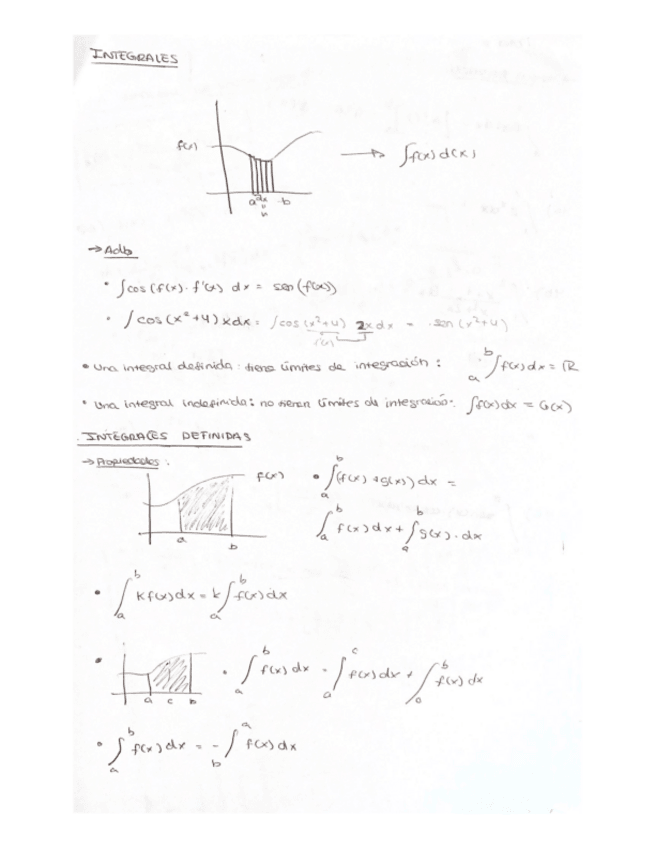 INTEGRALES
f(x) → ∫f(x) d(x)
a dx b
→
• ∫cos (f(x) · f'(x) dx = sen (f(x))
• ∫cos (x² + 4) x dx = ∫cos (x² + 4) 2x dx = sen (x² + 4)
• Una integral definida: tiene límites de integración: ₐ∫ᵇ f(x) dx = ℝ
• Una integral indefinida: no tienen límites de integración: ∫f(x) dx = G(x)
INTEGRALES DEFINIDAS
→ Propiedades:
f(x) • ₐ∫ᵇ (f(x) + g(x)) dx =
a b ₐ∫ᵇ f(x) dx + ₐ∫ᵇ g(x) · dx
• ₐ∫ᵇ k f(x) dx = k ₐ∫ᵇ f(x) dx
• a c b • ₐ∫ᵇ f(x) dx = ₐ∫ᶜ f(x) dx + ∫ᵇ f(x) dx
• ₐ∫ᵇ f(x) dx = - b∫ᵃ f(x) dx